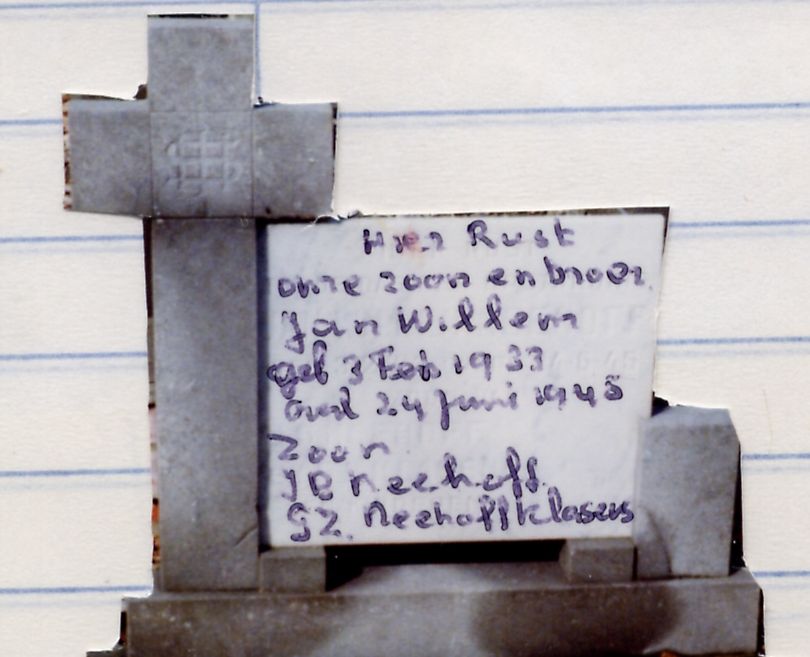 Hier Rust
onze zoon en broer
Jan Willem
geb 3 Feb 1933
overl 24 Juni 1945
Zoon
JB Neehoff
GZ. Neehoff Klasens